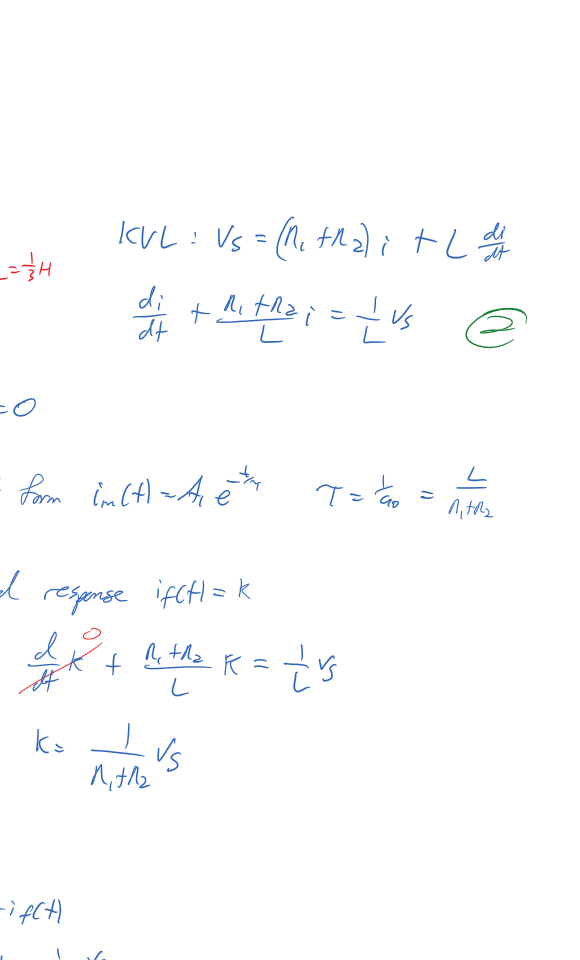 KVL : Vs = (r1 + r2) i + L di/dt
L = 1/3 H
di/dt + (r1 + r2)/L i = 1/L Vs   2
= 0
form in(t) = A1 e^(-t/τ)   τ = 1/a0 = L/(r1 + r2)
response if(t) = k
d/dt k 0 + (r1 + r2)/L K = 1/L Vs
k = 1/(r1 + r2) Vs
if(t)